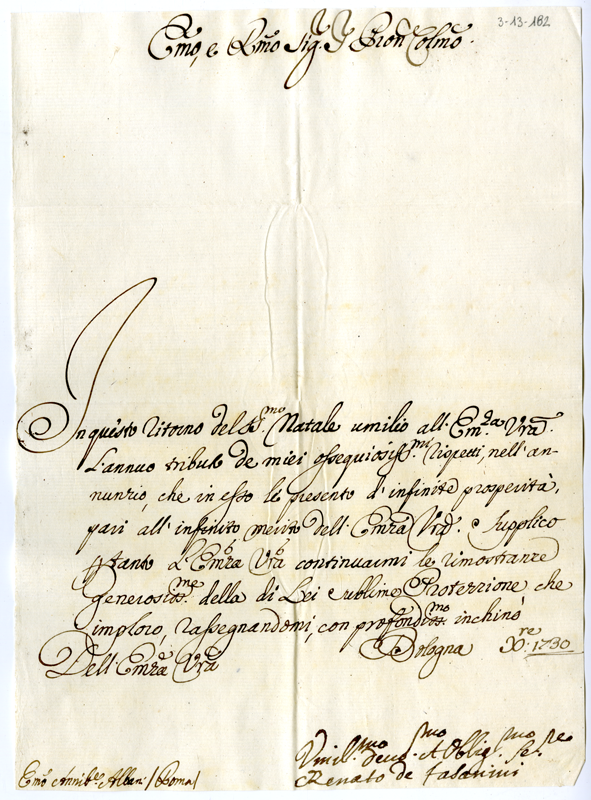 3-13-182
Emo, e Rmo Sig. Sig. Pron Colmo.
In questo ritorno del S.mo Natale umilio all' Em.za Vra.
L'annuo tributo de miei ossequiosiss.mi rispetti, nell' an-
nunzio, che in esso le presento d' infinite prosperità,
pari all' infinito merito dell' Emza Vra. Supplico
ptanto L' Emza Vra continuarmi le rimostranze
generosis.me della di Lei sublime Protezzione, che
imploro, rassegnandomi, con profondis.mo inchino
Dell' Emza Vra
Bologna Xre: 1730
Umil.mo devo.mo et Obblig.mo Se.re
Renato de Fasanini
Emo Annib.e Albani / Roma /